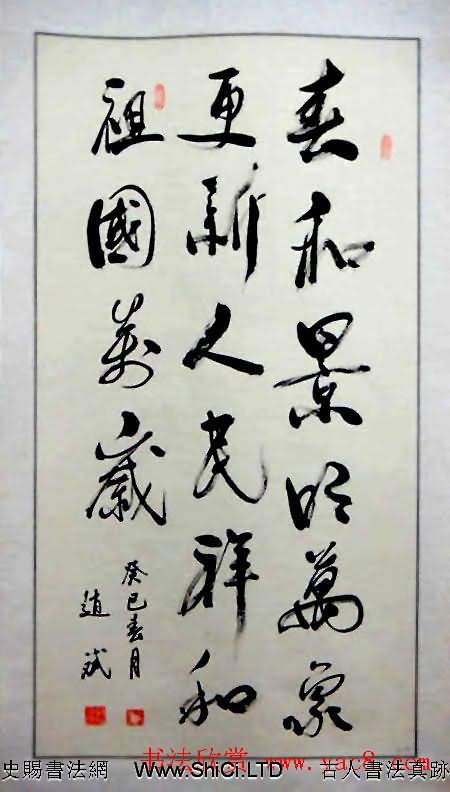 春和景明萬象
更新人民祥和
祖國萬歲
癸巳春月
趙斌
书法欣赏 www.yac8.com
史賜書法網 Www.ShiCi.LTD 古人書法真跡